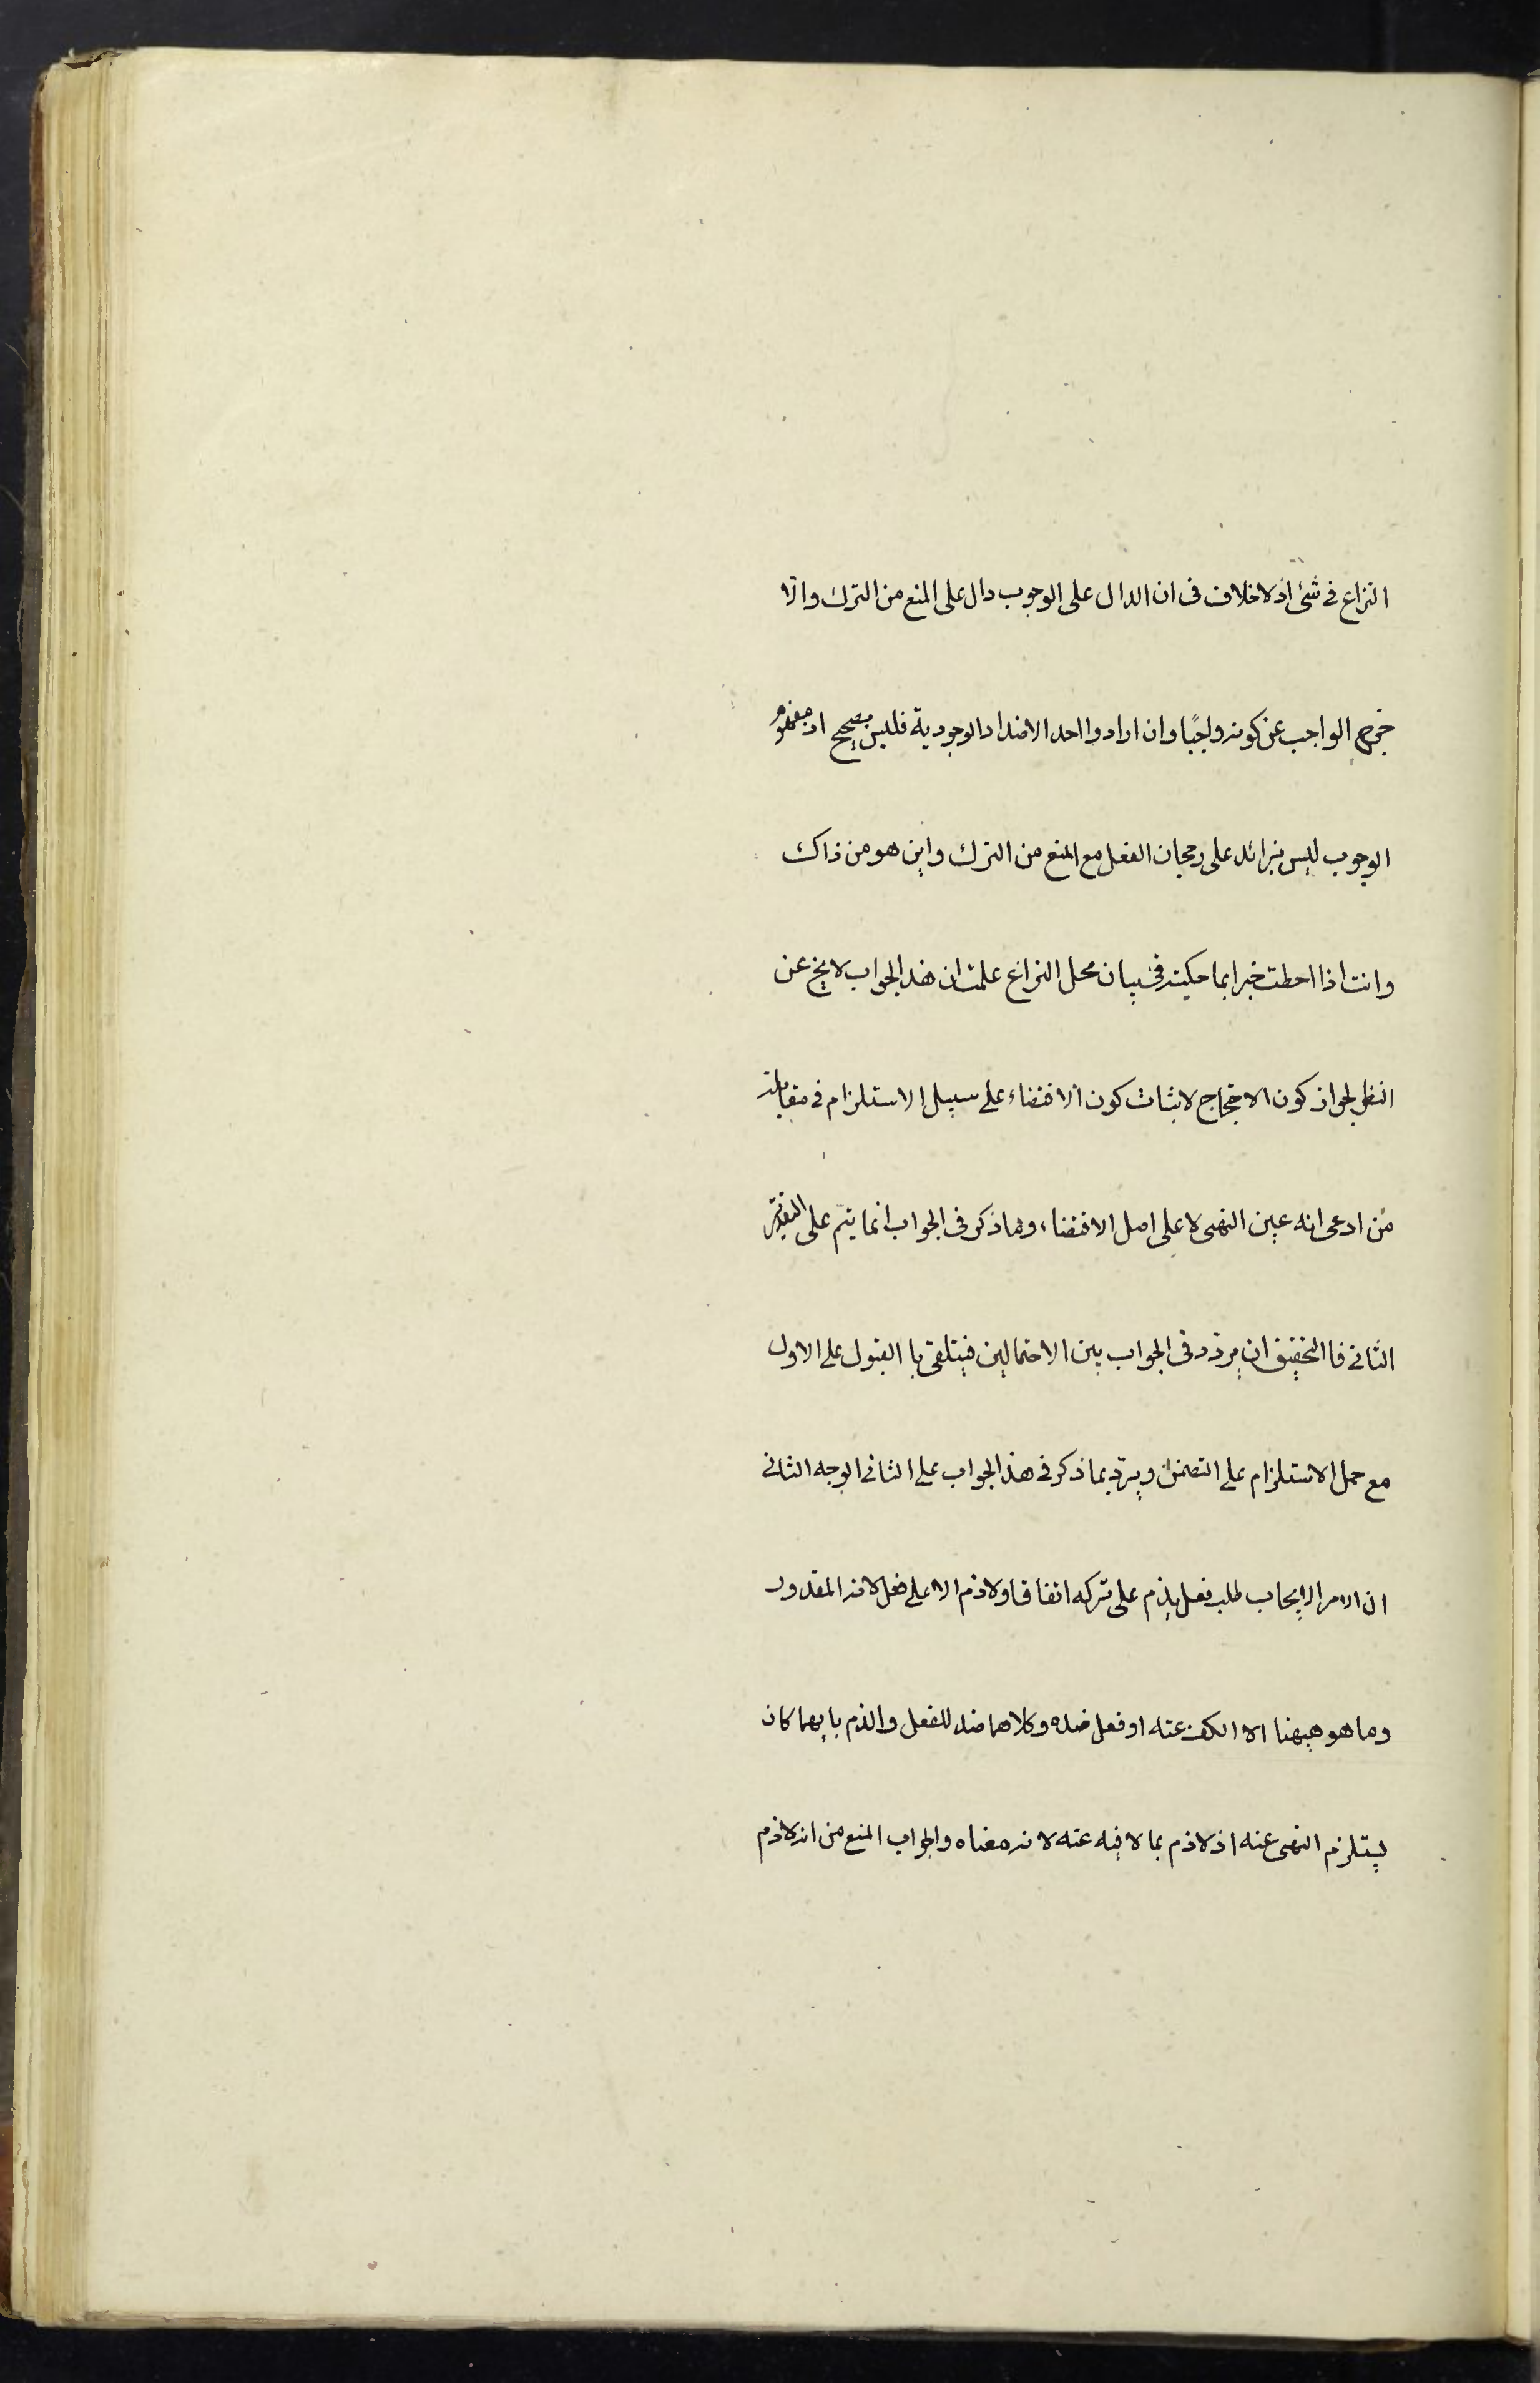 النزاع في شئ اذ لا خلاف فى ان الدال على الوجوب دال على المنع من الترك والّا
خرج الواجب عن كونه واجبًا وان ارادوا احد الاضداد الوجودية فليس بصحيح اذ مفهوم
الوجوب ليس بزائد على رجحان الفعل مع المنع من الترك واين هو من ذاك
وانت اذا احطت خبرا بما حكيته فى بيان محل النزاع علمت ان هذا الجواب لا يخ عن
النظر لجواز كون الاحتجاج لاثبات كون الاقتضاء على سبيل الاستلزام فى مقابلة
من ادعى انه عين النهى لا على اصل الاقتضاء وما ذكر فى الجواب انما يتم على التقدير
الثانى فا التحقيق ان يردّد فى الجواب بين الاحتمالين فيتلقى با القبول على الاول
مع حمل الاستلزام على التضمن ويردّ بما ذكر فى هذا الجواب على الثانى الوجه الثانى
ان الامر الايجاب طلب فعل يذم على تركه اتفاقا ولا ذم الا على فعل لانه المقدور
وما هو هيهنا الا الكف عنه او فعل ضده وكلاهما ضد للفعل والذم بايهما كان
يستلزم النهى عنه اذ لا ذم بما لا فيه عنه لانه معناه والجواب المنع من انه لا ذم